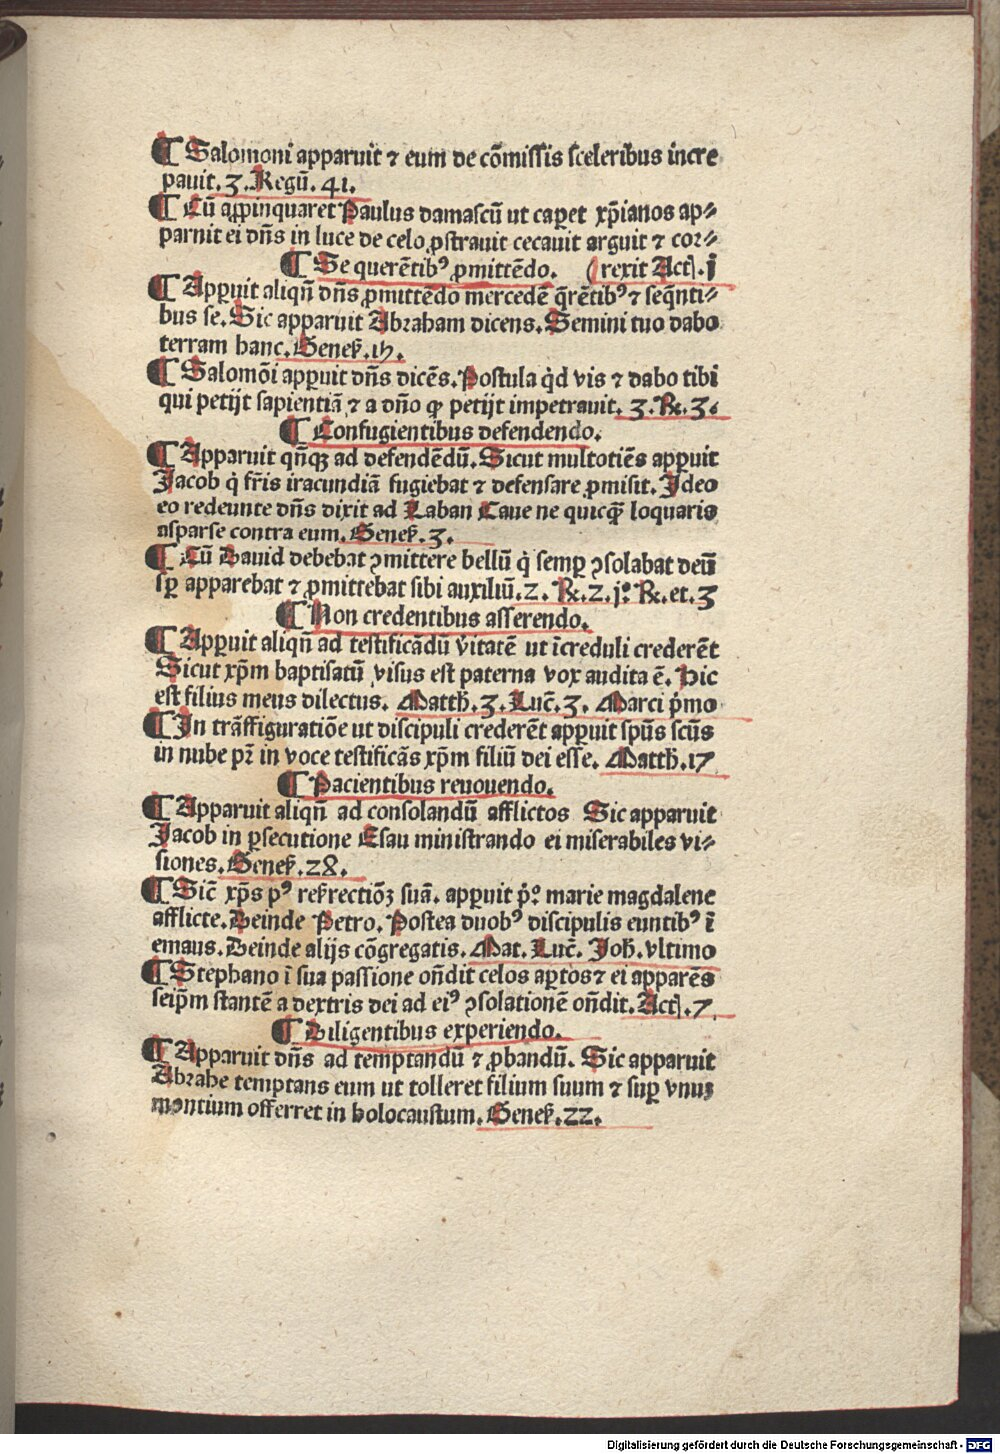 ¶ Salomoni apparuit ⁊ eum de cōmissis sceleribus incre
pauit. 3. Regū. 41.
¶ Cū aꝓpinquaret Paulus damascū ut caꝑet xp̄ianos ap⸗
parnit ei dn̄s in luce de celo ꝓstrauit cecauit arguit ⁊ cor⸗
¶ Se querētibꝰ ꝓmittēdo. (rexit Act. j
¶ Apꝑuit aliqn̄ dn̄s ꝓmittēdo mercedē q̄rētibꝰ ⁊ seqn̄ti⸗
bus se. Sic apparuit Abraham dicens. Semini tuo dabo
terram hanc. Genes.
¶ Salomōi apꝑuit dn̄s dicēs. Postula qd̓ vis ⁊ dabo tibi
qui petijt sapientiā ⁊ a dn̄o ꝙ petijt impetrauit. 3. R. 3.
¶ Confugientibus defendendo.
¶ Apparuit qn̄qꝫ ad defendēdū. Sicut multotiēs apꝑuit
Jacob q̇ fr̄is iracundiā fugiebat ⁊ defensare ꝓmisit. Ideo
eo redeunte dn̄s dixit ad Laban Caue ne quicq̄ loquaris
asparse contra eum. Genes. 3.
¶ Cū Dauid debebat ꝯmittere bellū q̇ semꝑ ꝯsolabat deū
sꝑ apparebat ⁊ ꝓmittebat sibi auxiliū. 2. R. 2. jº. R. et. 3
¶ Non credentibus asserendo.
¶ Apꝑuit aliqn̄ ad testificādū v̇itatē ut īcreduli crederēt
Sicut xp̄m baptisatū visus est paterna vox audita ē. Hic
est filius meus dilectus. Matth. 3. Luc̄. 3. Marci ṗmo
¶ In trāsfiguratiōe ut discipuli crederēt apꝑuit spūs scūs
in nube pr̄ in voce testificās xp̄m filiū dei esse. Matth. 17
¶ Pacientibus reuouendo.
¶ Apparuit aliqn̄ ad consolandū afflictos Sic apparuit
Jacob in ꝑsecutione Esau ministrando ei miserabiles vi⸗
siones. Genes. 28.
¶ Sic̄ xp̄s pꝰ resrectiōꝫ suā. apꝑuit ṗº marie magdalene
afflicte. Deinde Petro. Postea duobꝰ discipulis euntibꝰ ī
emaus. Deinde alijs cōgregatis. Mat. Luc̄. Joh. vltimo
¶ Stephano ī sua passione on̄dit celos aꝑtos ⁊ ei apparēs
seip̄m stantē a dextris dei ad eiꝰ ꝯsolationē on̄dit. Act. 7
¶ Diligentibus experiendo.
¶ Apparuit dn̄s ad temptandū ⁊ ꝓbandū. Sic apparuit
Abrahe temptans eum ut tolleret filium suum ⁊ suꝑ vnum
montium offerret in holocaustum. Genes. 22.
Digitalisierung gefördert durch die Deutsche Forschungsgemeinschaft - DFG